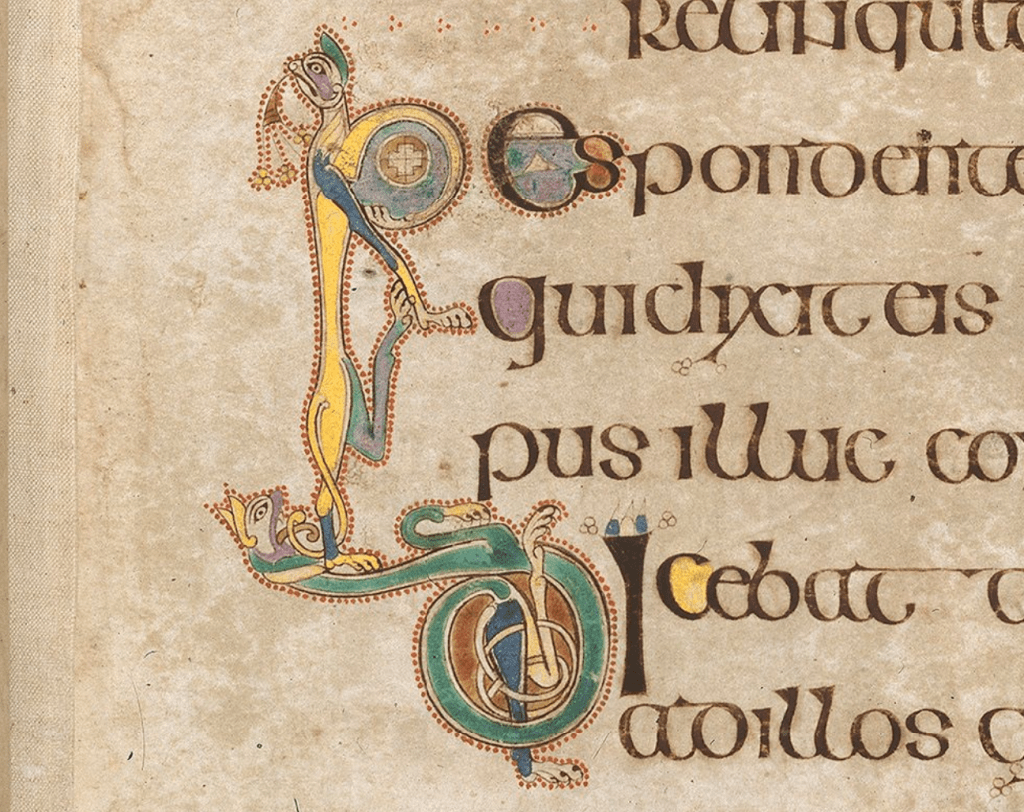 relinquitu
Respondente
quidixit eis
pus illuc co
Dicebat a
adillos q